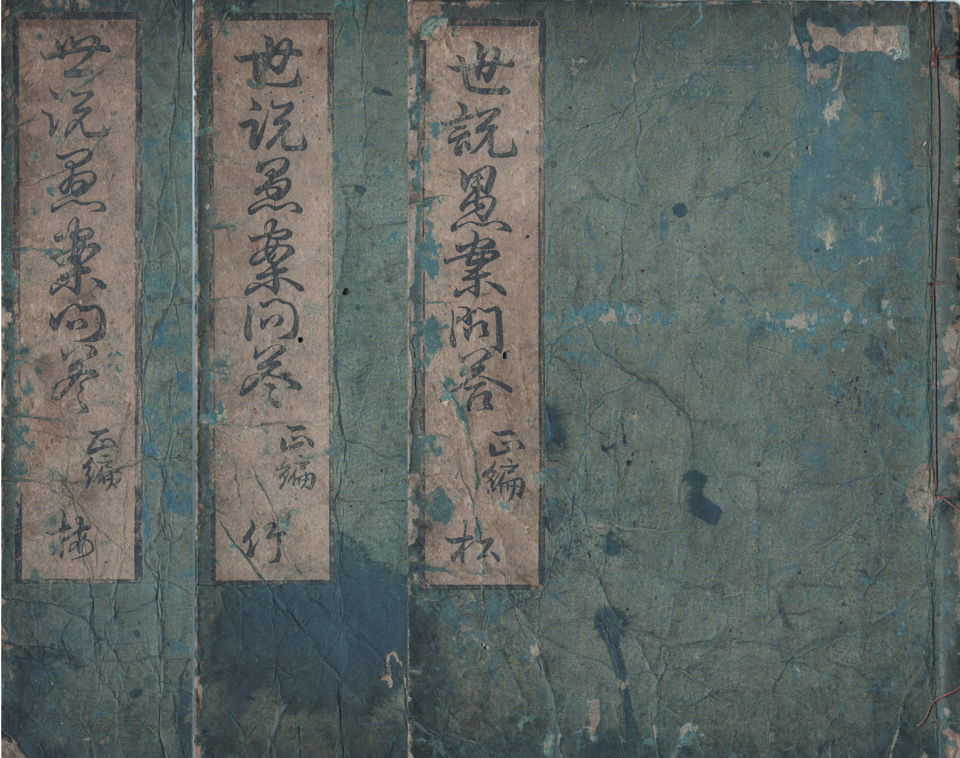 世説愚案問答
正編
松
世説愚案問答
正編
竹
世説愚案問答
正編
梅